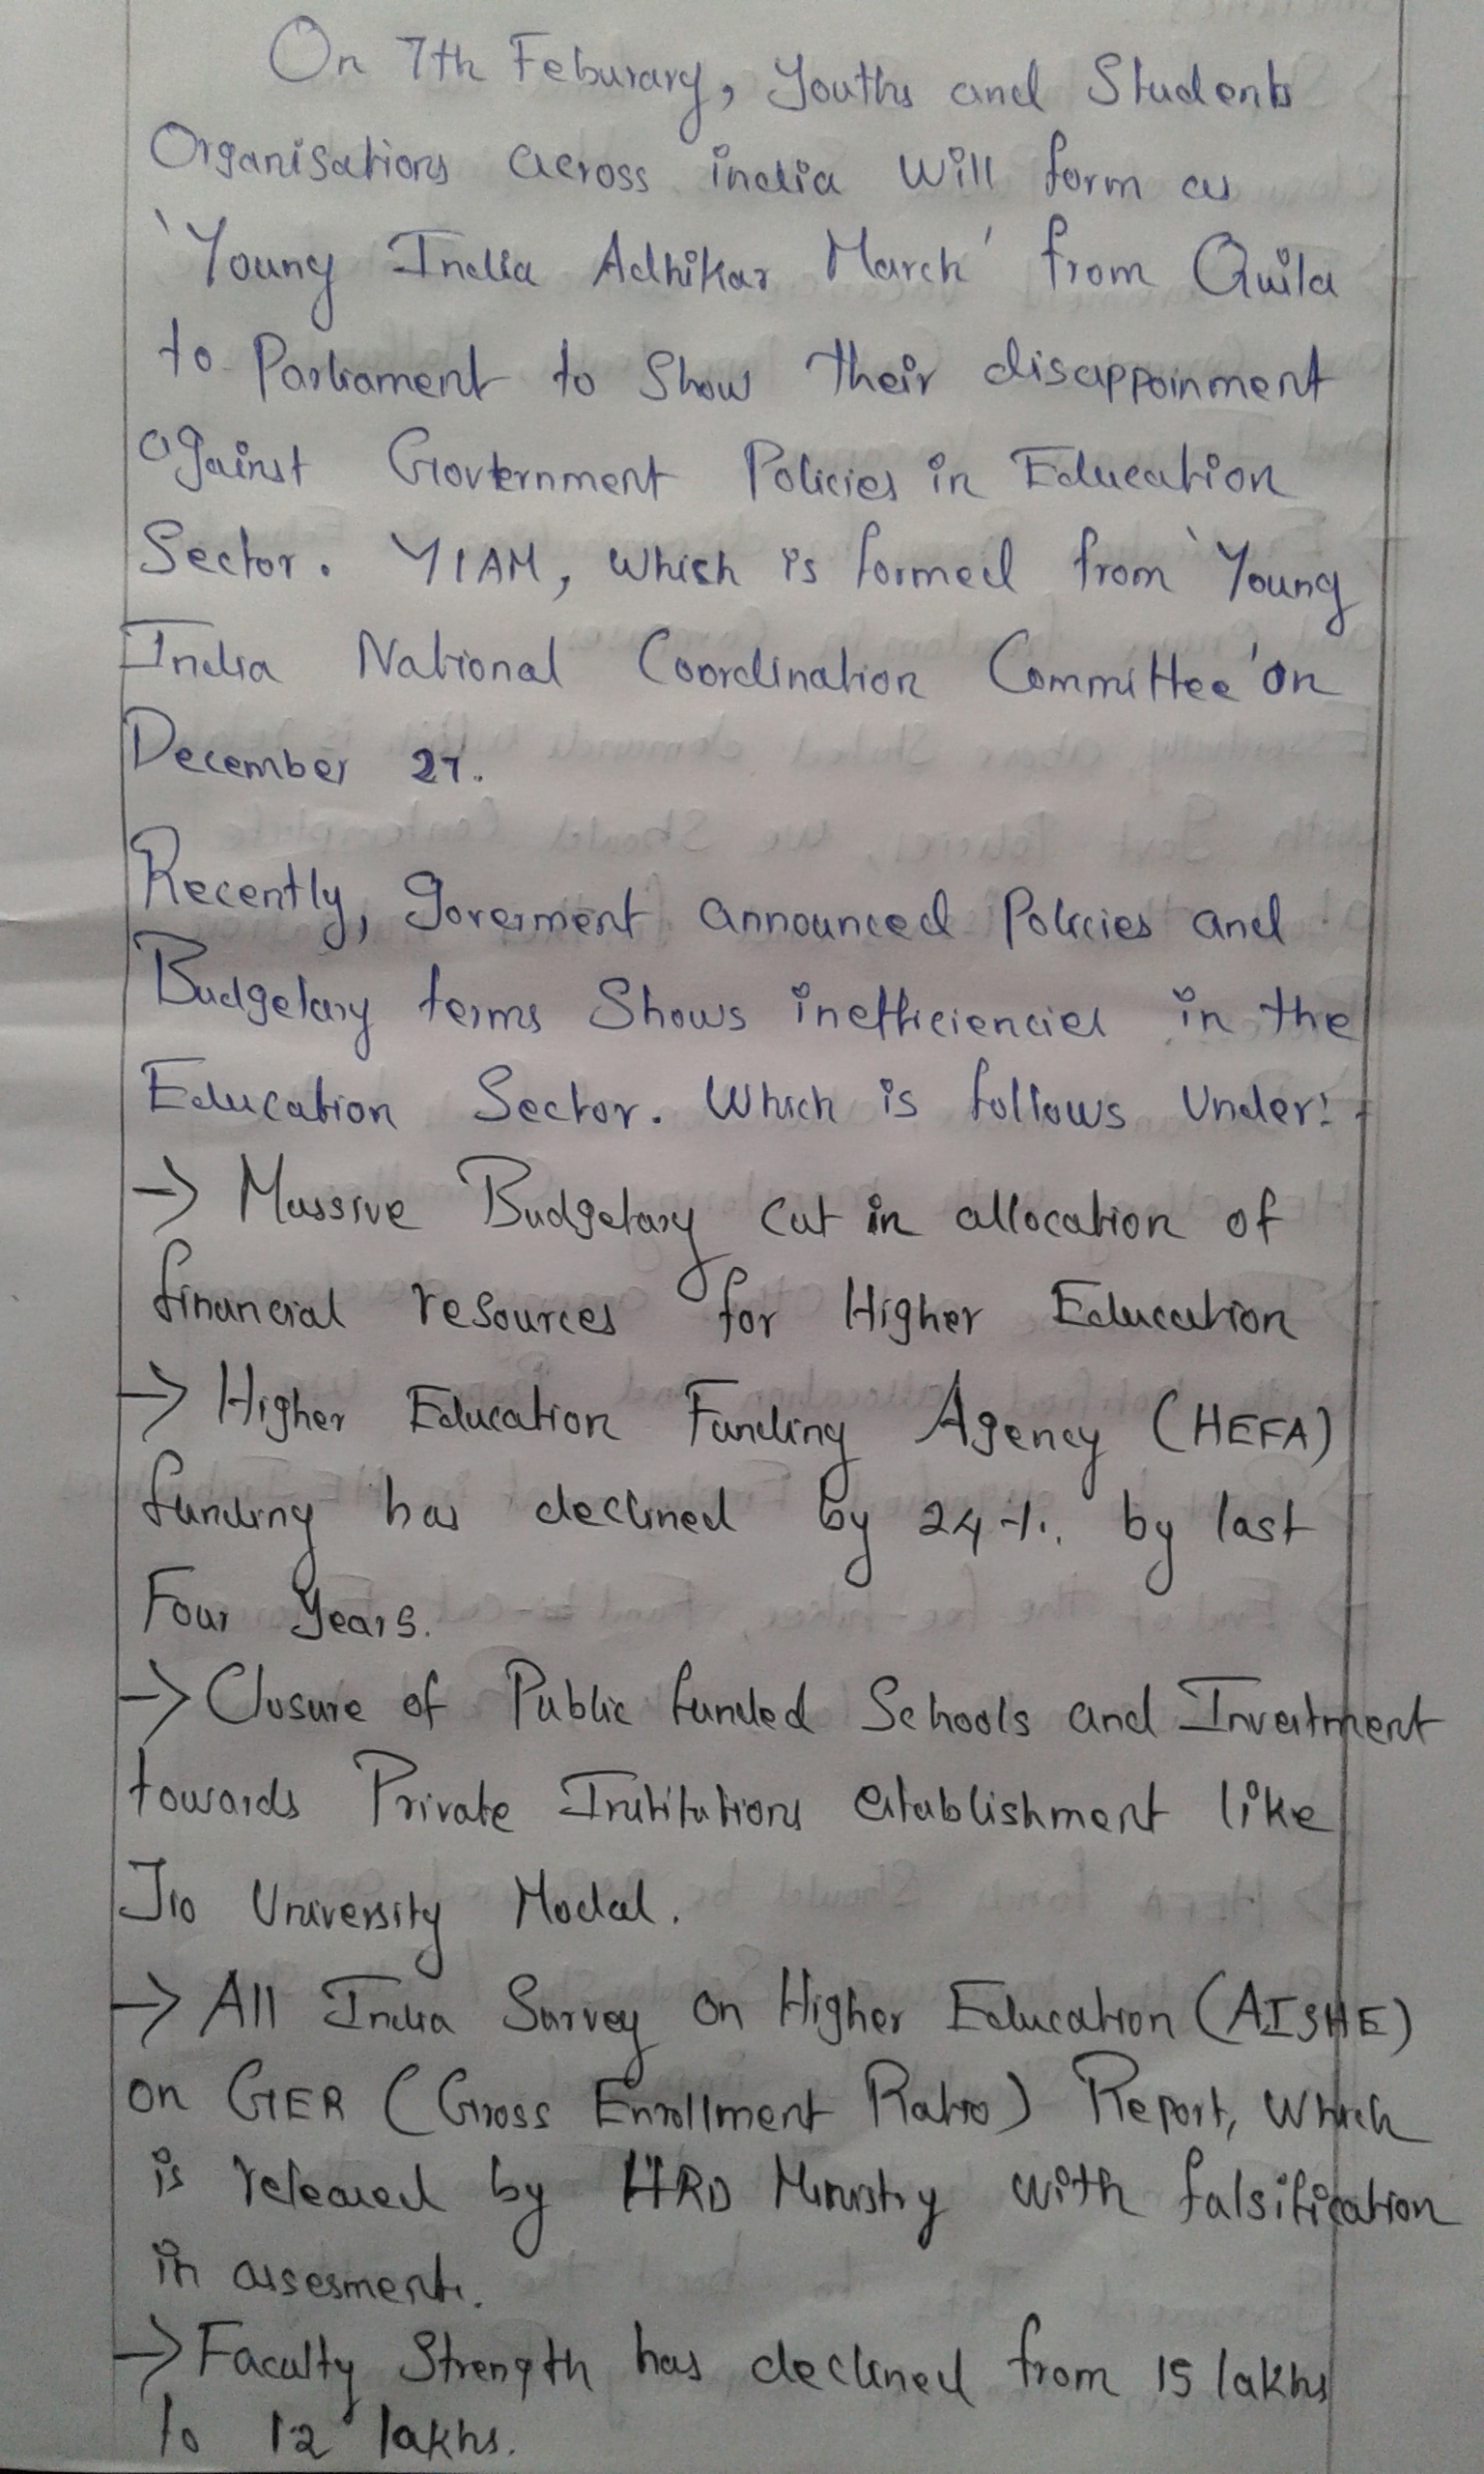 On 7th Feburary, Youths and Students
Organisations across india will form as
'Young India Adhikar March' from Quila
to Parliament to Show their disappoinment
against Government Policies in Education
Sector. YIAM, which is formed from 'Young
India National Coordination Committee' on
December 27.
Recently, goverment announced Policies and
Budgetary terms Shows inefficiencies in the
Education Sector. Which is follows Under:-
→ Massive Budgetary cut in allocation of
financial resources for Higher Education
→ Higher Education Funding Agency (HEFA)
funding has declined by 24%. by last
Four Years.
→ Closure of Public funded Schools and Investment
towards Private Institutions establishment like
Jio University Modal.
→ All India Survey on Higher Education (AISHE)
on GER (Gross Enrollment Ratio) Report, which
is released by HRD Ministry with falsification
in assesments.
→ Faculty Strength has declined from 15 lakhs
to 12 lakhs.